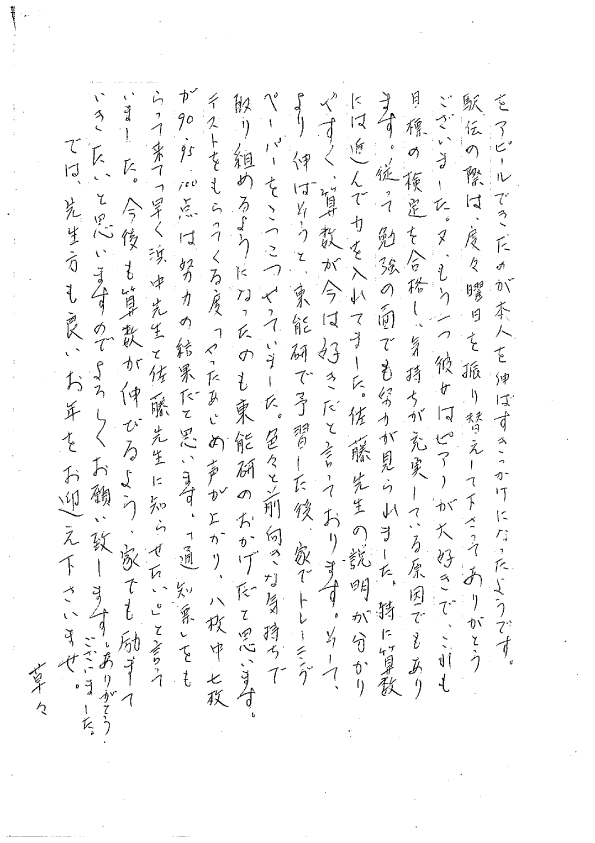 をアピールできたのが本人を伸ばすきっかけになったようです。
駅伝の際は、度々曜日を振り替えして下さってありがとう
ございました。又、もう一つ彼女はピアノが大好きで、これも
目標の検定を合格し、気持ちが充実している原因でもあり
ます。従って勉強の面でも努力が見られました。特に算数
には進んで力を入れてました。佐藤先生の説明が分かり
やすく、算数が今は好きだと言っております。そして、
より伸ばそうと、東能研で予習した後、家でトレーニング
ペーパーをこつこつやっていました。色々と前向きな気持ちで
取り組めるようになったのも東能研のおかげだと思います。
テストをもらってくる度「やったぁ」じめ声が上がり、八枚中七枚
が90.95.100点は努力の結果だと思います。「通知票」をも
らって来て「早く浜中先生と佐藤先生に知らせたい。」と言って
いました。今後も算数が伸びるよう、家でも励まして
いきたいと思いますのでよろしくお願い致します。ありがとう
ございました。
では、先生方も良いお年をお迎え下さいませ。
草々